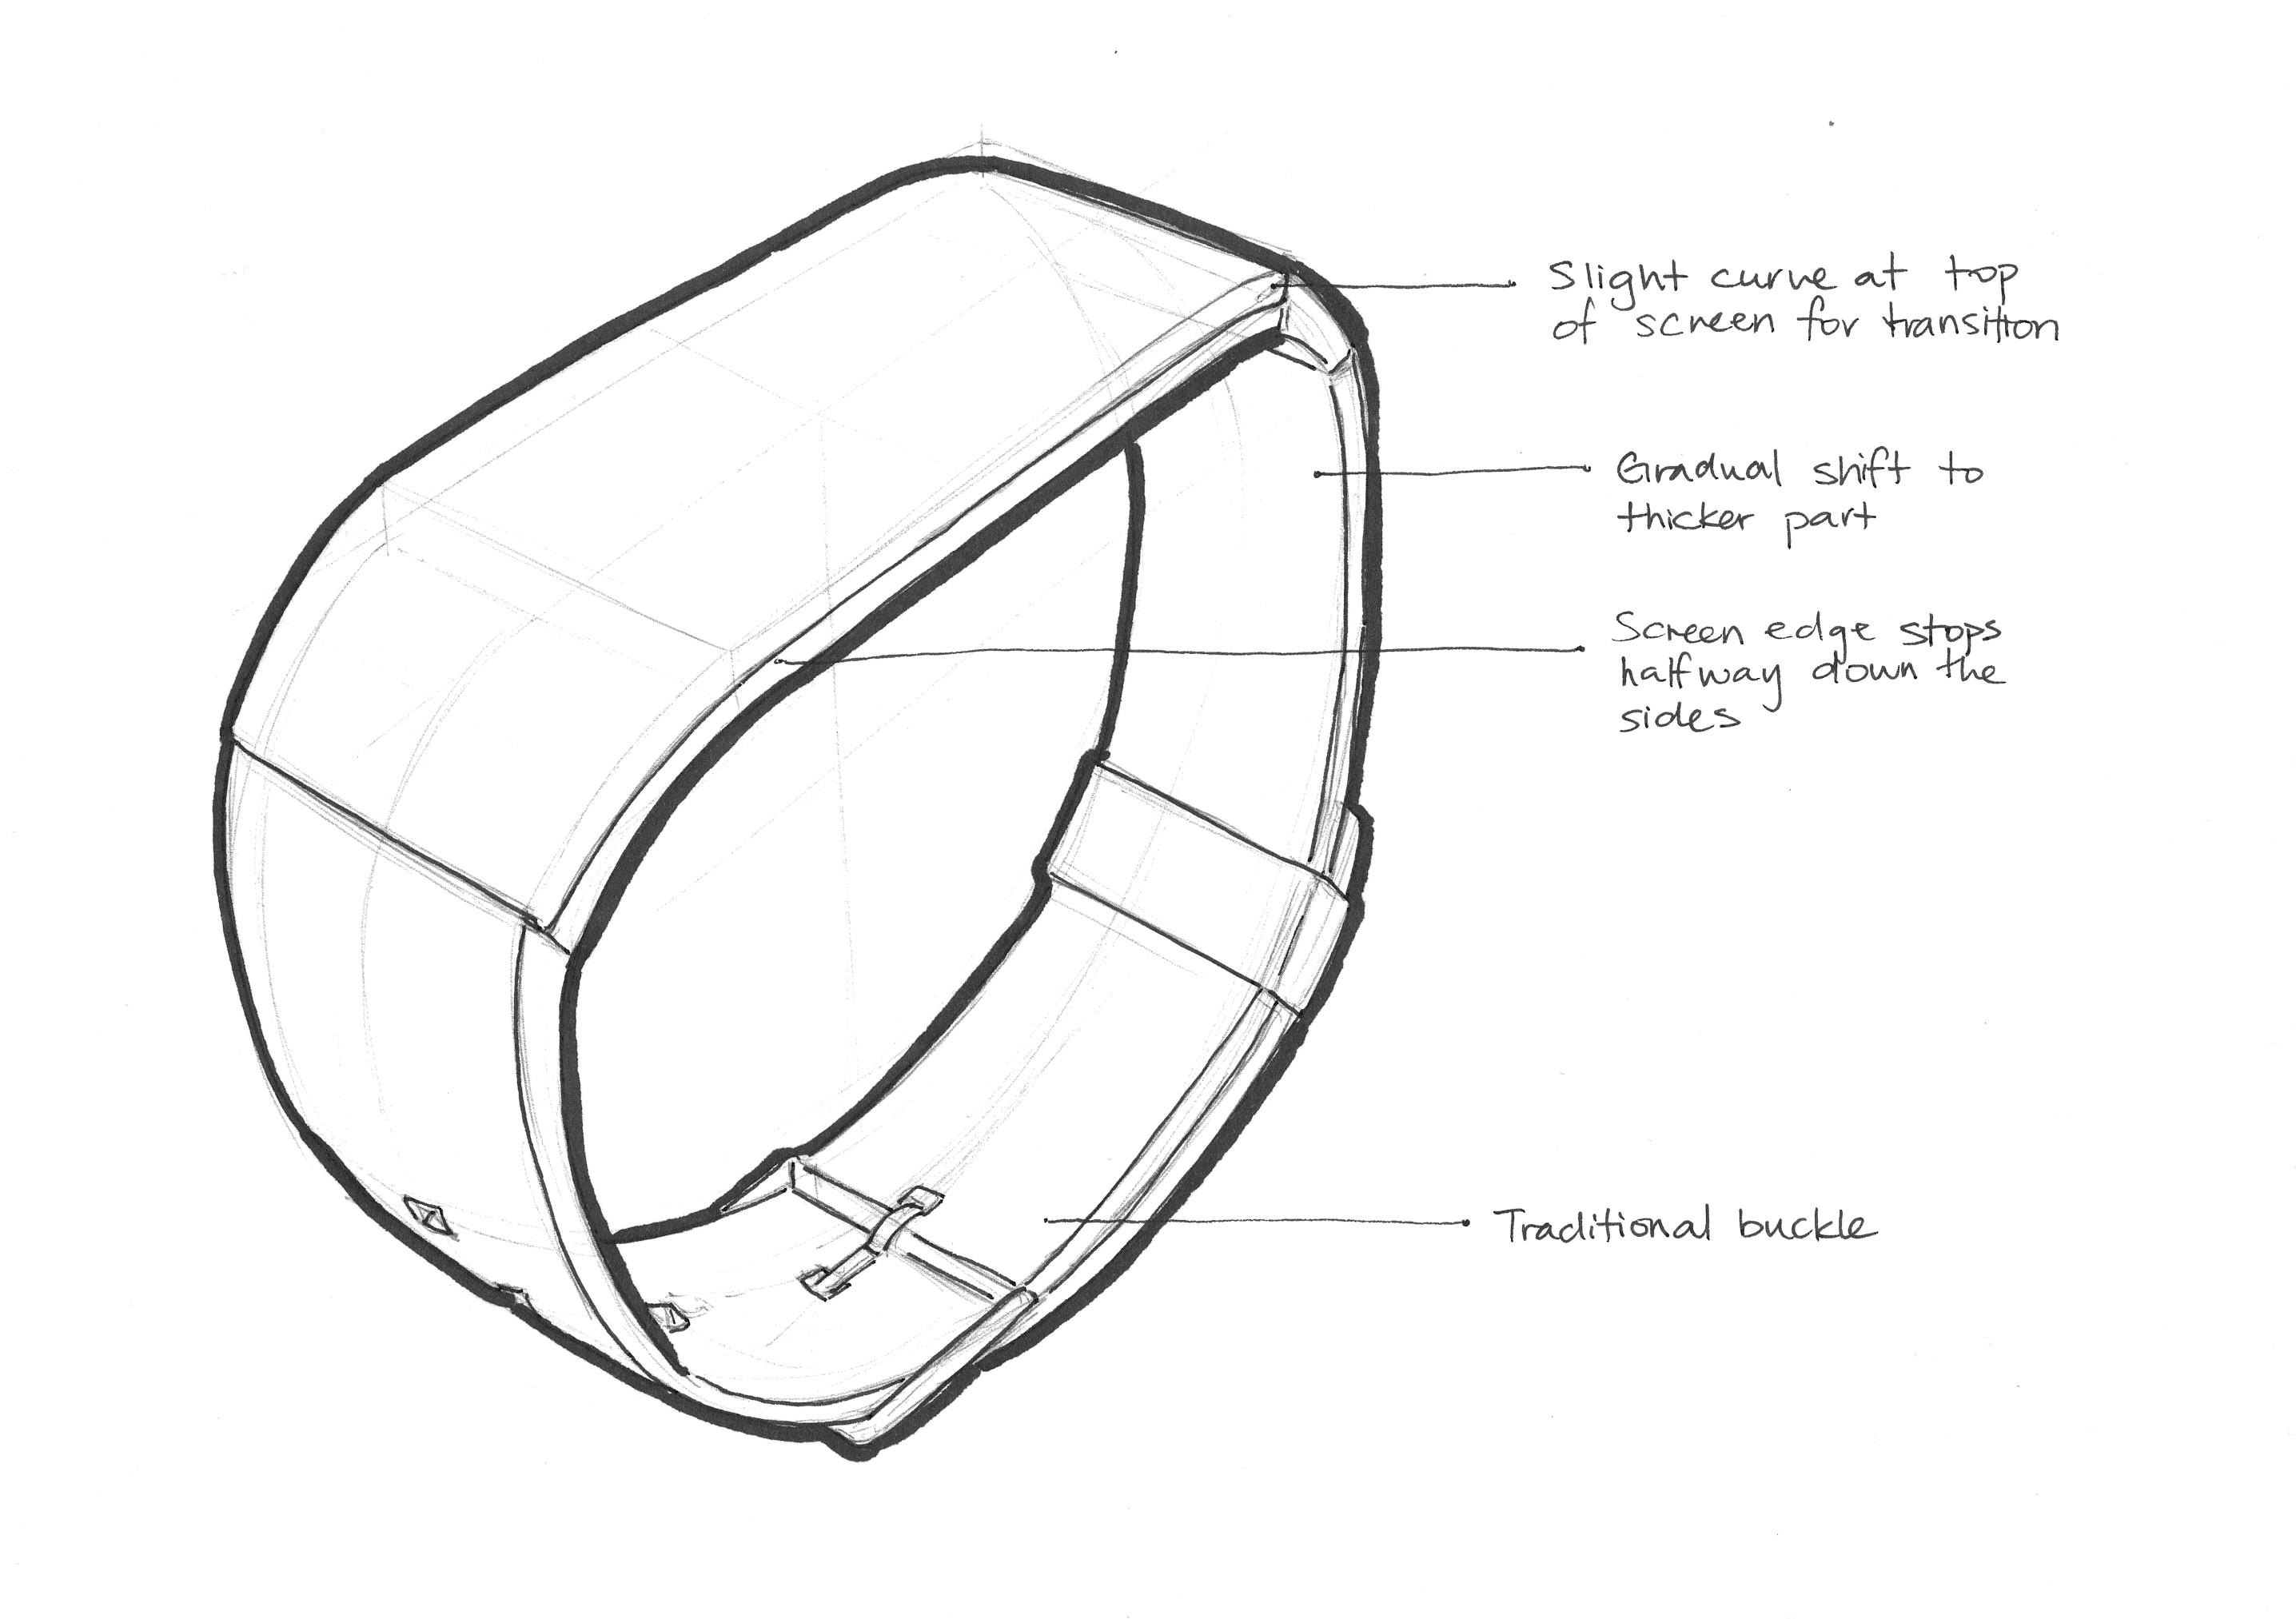 Slight curve at top
of screen for transition
Gradual shift to
thicker part
Screen edge stops
halfway down the
sides
Traditional buckle